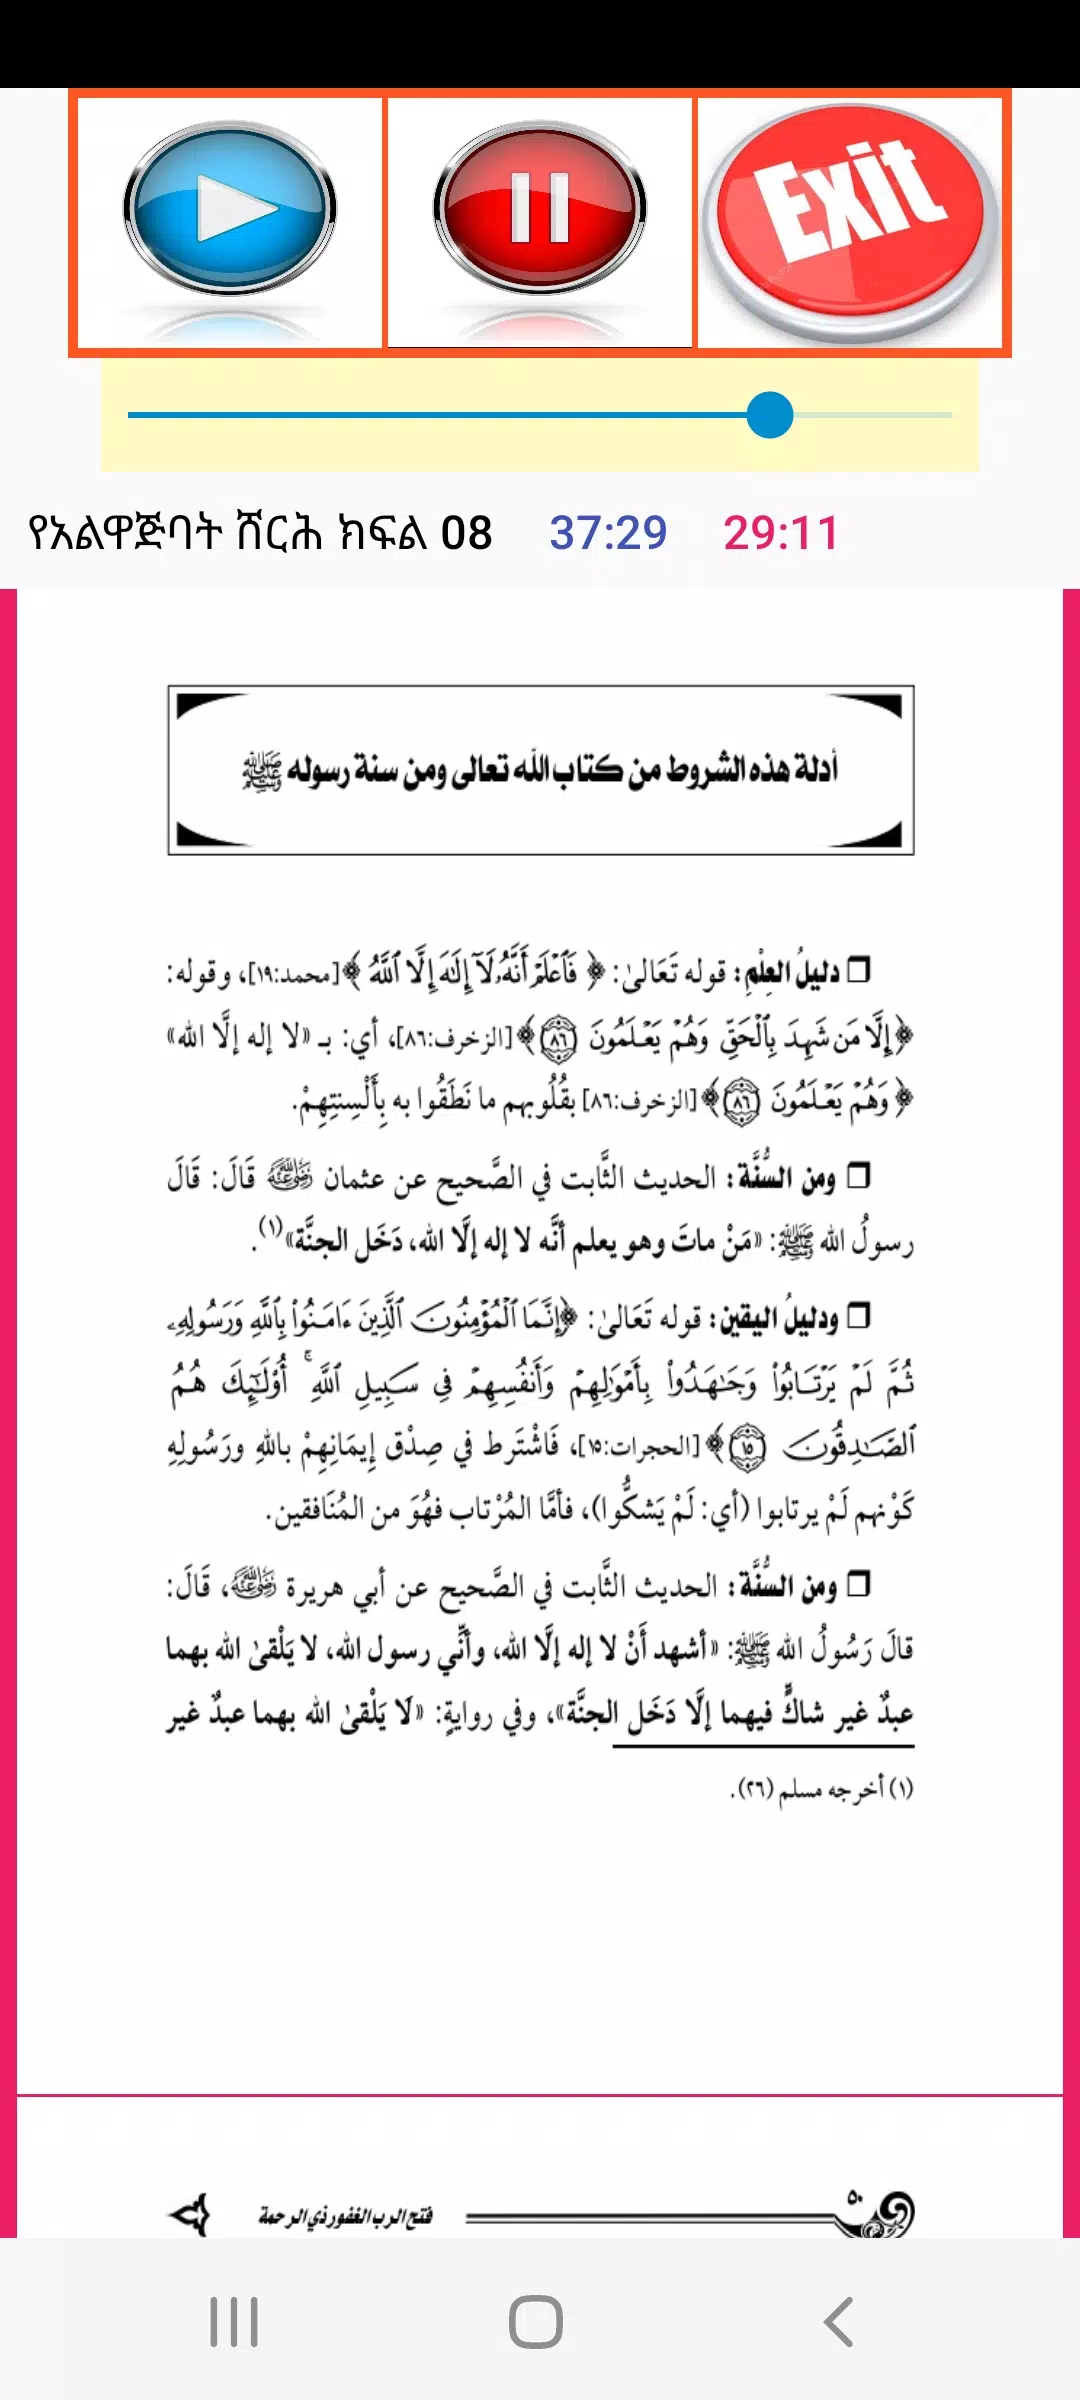 Exit
የአልዋጅባት ሸርሕ ክፍል 08 37:29 29:11
أدلة هذه الشروط من كتاب الله تعالى ومن سنة رسوله ﷺ
❒ دليلُ العِلْمِ: قوله تَعَالىٰ: ﴿فَٱعۡلَمۡ أَنَّهُۥ لَآ إِلَٰهَ إِلَّا ٱللَّهُ﴾ [محمد:١٩]، وقوله:
﴿إِلَّا مَن شَهِدَ بِٱلۡحَقِّ وَهُمۡ يَعۡلَمُونَ ٨٦﴾ [الزخرف:٨٦]، أي: بـ «لا إله إلَّا الله»
﴿وَهُمۡ يَعۡلَمُونَ ٨٦﴾ [الزخرف:٨٦] بقُلُوبهم ما نَطَقُوا به بِأَلْسِنتِهِمْ.
❒ ومن السُّنَّة: الحديث الثَّابت في الصَّحيح عن عثمان رضي الله عنه قَالَ: قَالَ
رسولُ الله ﷺ: «مَنْ ماتَ وهو يعلم أنَّه لا إله إلَّا الله، دَخَل الجنَّة»(١).
❒ ودليلُ اليقين: قوله تَعَالىٰ: ﴿إِنَّمَا ٱلۡمُؤۡمِنُونَ ٱلَّذِينَ ءَامَنُواْ بِٱللَّهِ وَرَسُولِهِۦ
ثُمَّ لَمۡ يَرۡتَابُواْ وَجَٰهَدُواْ بِأَمۡوَٰلِهِمۡ وَأَنفُسِهِمۡ فِي سَبِيلِ ٱللَّهِۚ أُوْلَٰٓئِكَ هُمُ
ٱلصَّٰدِقُونَ ١٥﴾ [الحجرات:١٥]، فَاشْتَرط في صِدْق إيمَانِهِمْ باللهِ ورَسُولِهِ
كَوْنهم لَمْ يرتابوا (أي: لَمْ يَشكُّوا)، فأمَّا المُرْتاب فهُوَ من المُنَافقين.
❒ ومن السُّنَّة: الحديث الثَّابت في الصَّحيح عن أبي هريرة رضي الله عنه، قَالَ:
قالَ رَسُولُ الله ﷺ: «أشهد أَنْ لا إله إلَّا الله، وأنِّي رسول الله، لا يَلْقىٰ الله بهما
عبدٌ غير شاكٍّ فيهما إلَّا دَخَل الجنَّة»، وفي روايةٍ: «لَا يَلْقىٰ الله بهما عبدٌ غير
(١) أخرجه مسلم (٢٦).
٥٠ فتح الرب الغفور ذي الرحمة